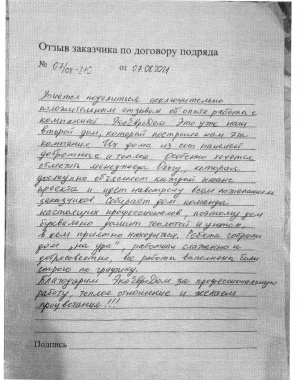 Отзыв заказчика по договору подряда
№ 07/08-21С от 07.08.2021
Хочется поделиться исключительно
положительным отзывом об опыте работы с
компанией ЭкоЕвроДом. Это уже наш
второй дом, который построила нам эта
компания. Их дома из сип панелей
добротные и теплые. Особенно хочется
отметить менеджера, которая
доступно объясняет каждый нюанс
проекта и идет навстречу всем пожеланиям
заказчиков. Собирает дом команда
настоящих профессионалов, поэтому дом
буквально дышит теплотой и уютом,
в нем приятно находиться. Ребята собрали
дом "на ура", работали слаженно и
добросовестно, все работы выполнены были
строго по графику.
Благодарим ЭкоЕвроДом за профессиональную
работу, теплое отношение и желаем
процветания!!!
Подпись